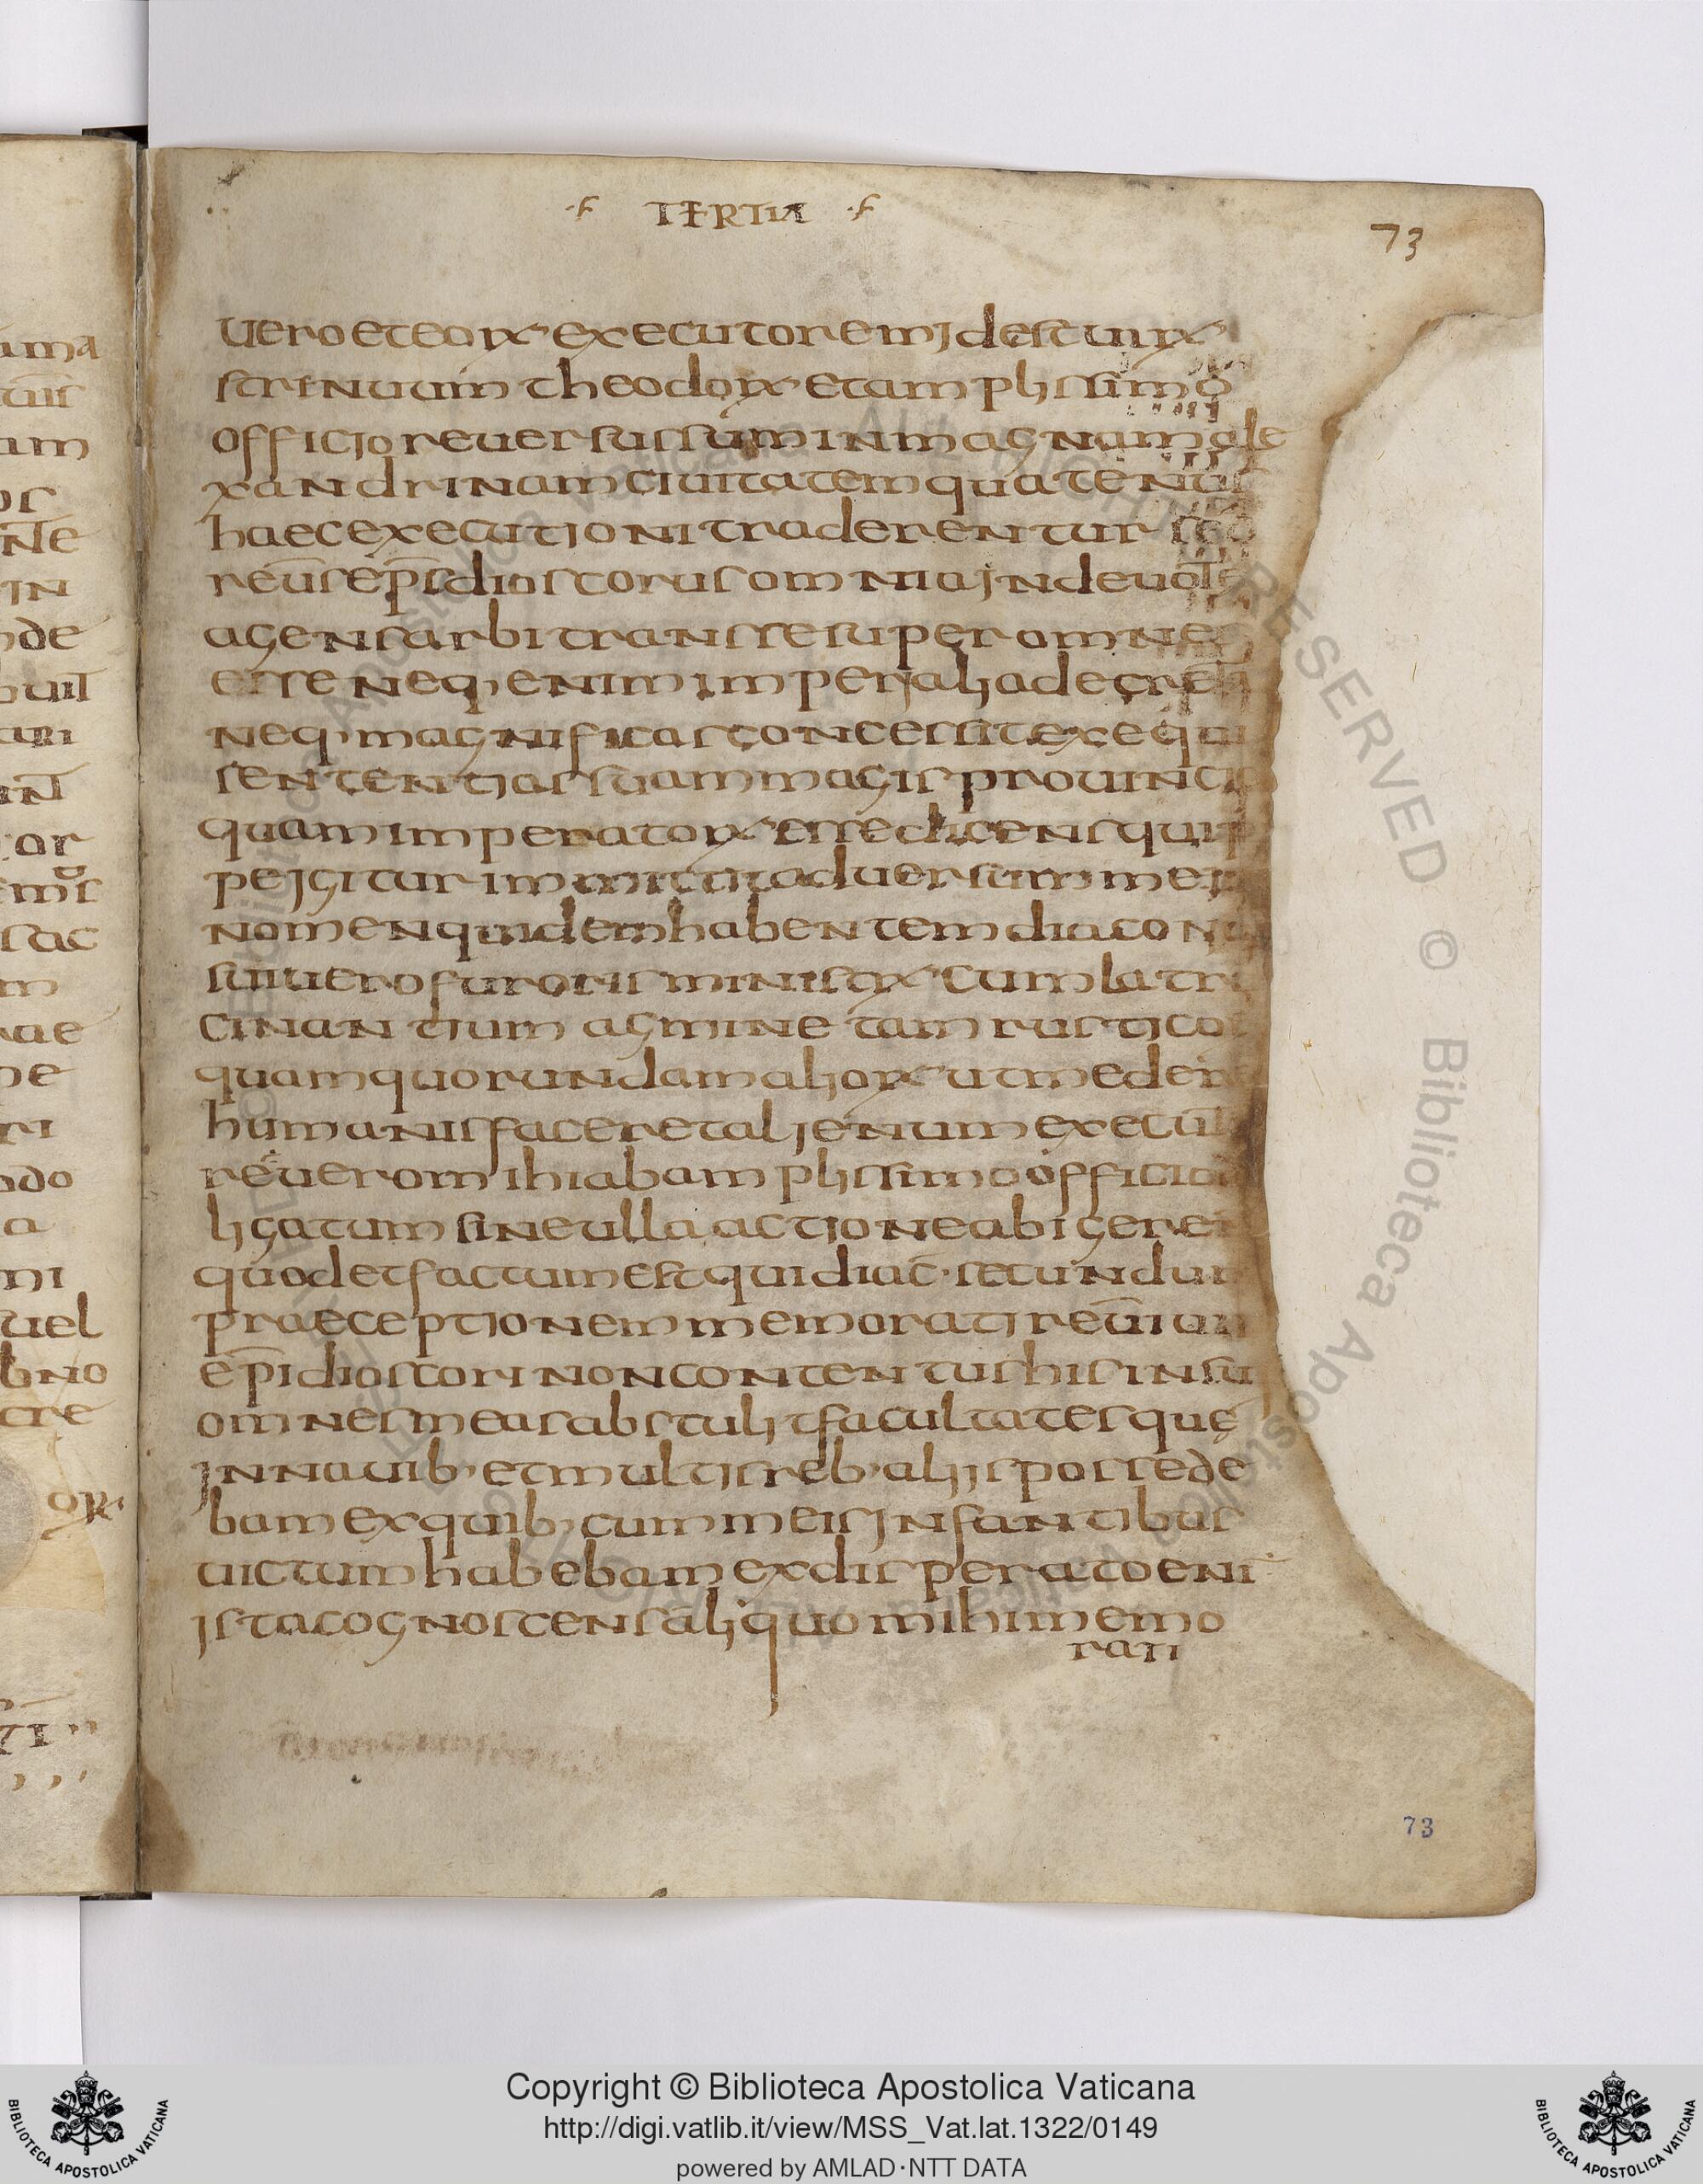 TERTIA
73
uero et eoꝝ executorem idest uiꝝ
strenuum theodoꝝ et amplissimo
officio reuersus sum in magnam ale
xandrinam ciuitatem quatenus
haec executioni traderentur sed
reu̅s ep̅s dioscorus omnia indeuote
agens arbitrans se super omnes
esse neq, enim imperialia decreta
neq, magnificas concessit exequi
sententias suam magis prouincia
quam imperatoꝝ esse dicens quip
pe igitur immittit aduersum me
nomen quidem habentem diacon
sui uero furoris ministꝝ cum latro
cinantium agmine tam rusticos
quam quorundam alioꝝ ut me de re
humanis faceret alienum executo
re uero mihi ab amplissimo officio de
ligatum sine ulla actione abigeret
quod et factum est qui diac̅ secundum
praeceptionem memorati reu̅i um
ep̅i dioscori non contentus his insu
omnes meas abstulit facultates quę
in nauib, et multis reb, aliis possede
bam ex quib, cum meis infantibus
uictum habebam ex disperato eni
ista cognoscens aliquo mihi memo
rati
73
Copyright © Biblioteca Apostolica Vaticana
http://digi.vatlib.it/view/MSS_Vat.lat.1322/0149
powered by AMLAD·NTT DATA
BIBLIOTECA APOSTOLICA VATICANA
BIBLIOTECA APOSTOLICA VATICANA